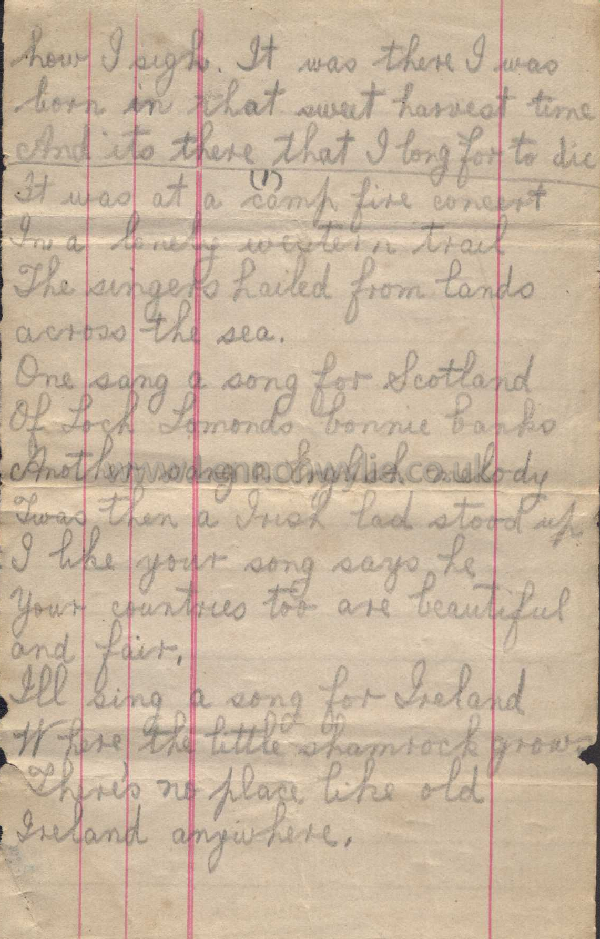 how I sigh. It was there I was
born in that sweet harvest time
And its there that I long for to die
(1)
It was at a camp fire concert
In a lonely western trail
The singers hailed from lands
across the sea.
One sang a song for Scotland
Of Loch Lomonds bonnie banks
Another sang a English melody
Twas then a Irish lad stood up
I like your song says he
Your countries too are beautiful
and fair.
I'll sing a song for Ireland
Where the little shamrock grow
There's no place like old
Ireland anywhere.